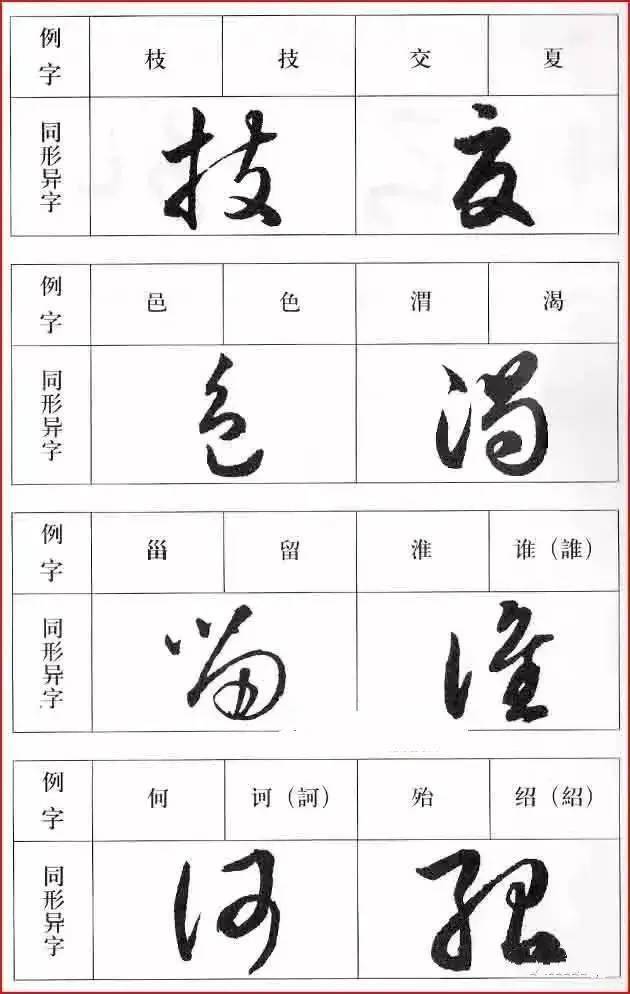 例字 枝 技 交 夏
同形异字 技 夏
例字 邑 色 渭 渴
同形异字 色 渴
例字 甾 留 淮 谁（誰）
同形异字 留 淮
例字 何 诃（訶） 殆 绍（紹）
同形异字 诃 绍